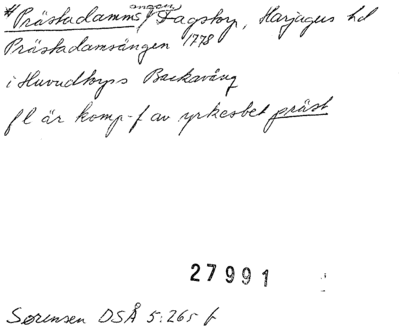 *Prästadammsängen, Fagstorp, Harjagers hd
Prästadamsängen 1778
i Huvudtorps Backavång
fl är komp-f av yrkesbet präst
27991
Sørensen DSÅ 5:265 f